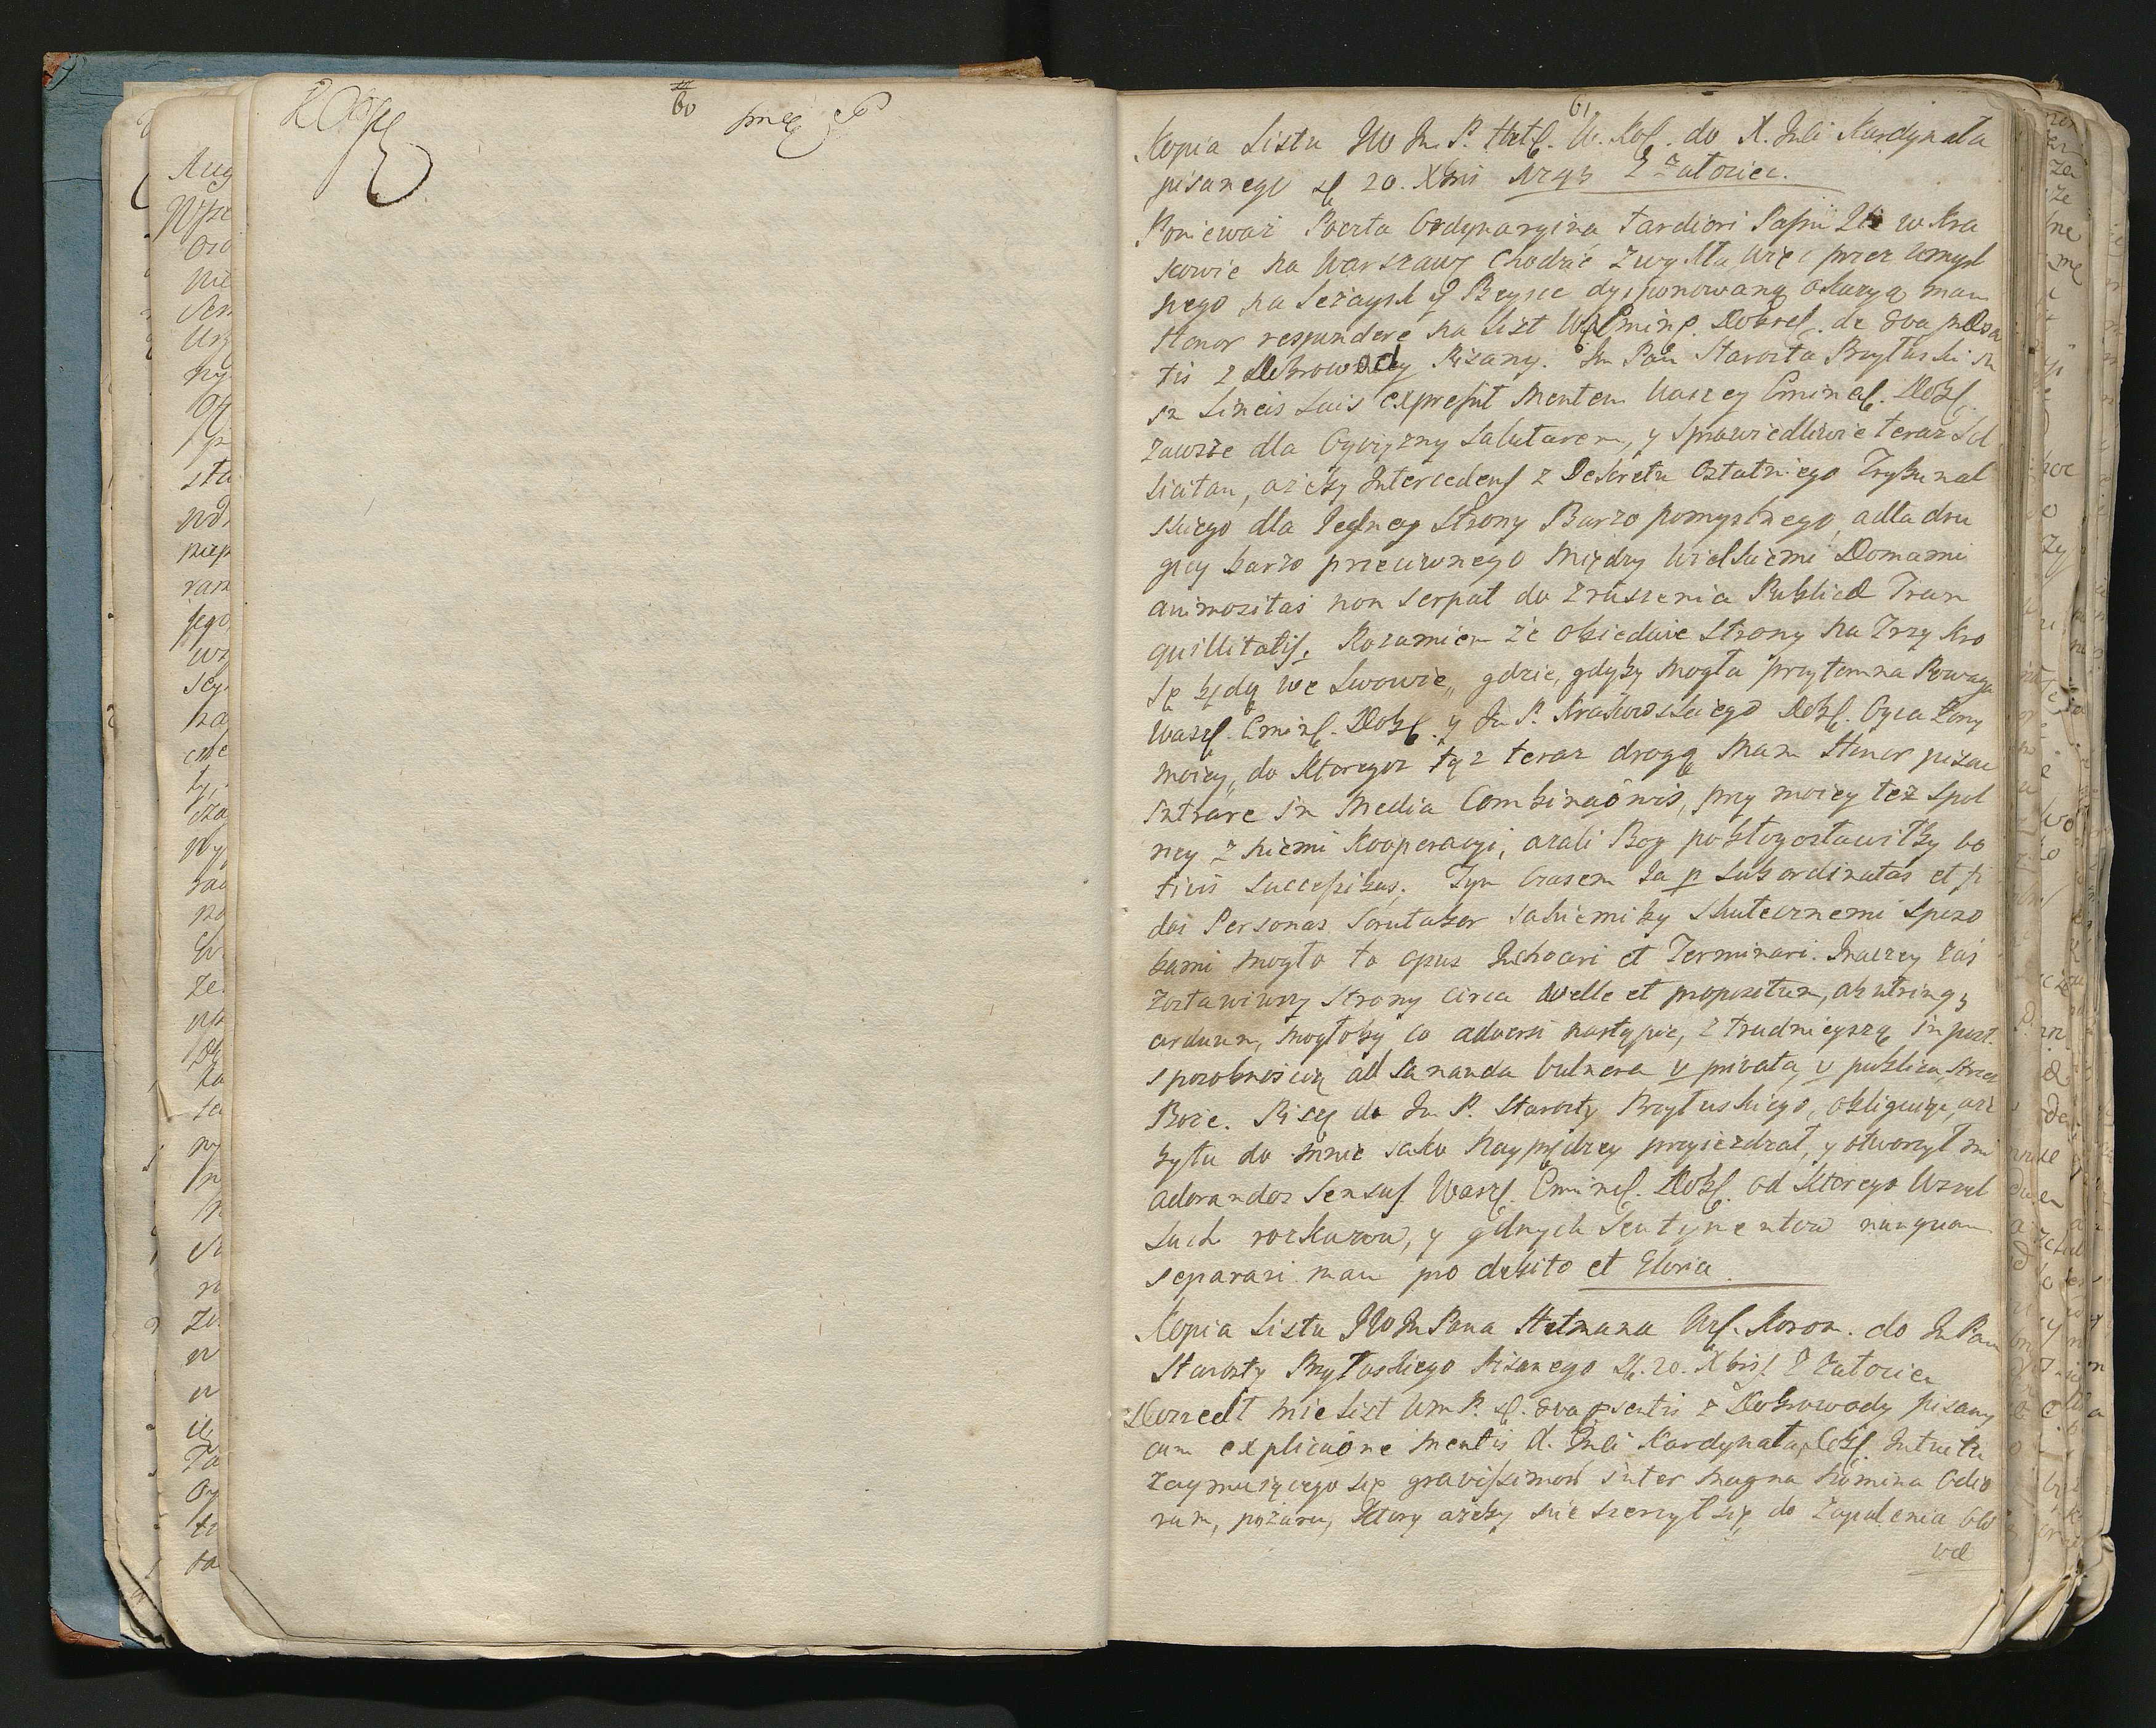 60
61
Kopia Listu JW Jm P. Het. W. Kor. do X. Jmci Kardynała
pisanego d. 20. Xbris z Załoziec.
Ponieważ Poczta Ordynaryina tardiori Passu w Kra
kowie na Warszawę Chodzić zwykła więc przez umyśl
nego na Leżaysk y Beysce dysponowaną okazyą mam
Honor respondere na List Eminē. Dobrē. de 8va
tis z Dobrowody Pisany. Jm Pan Starosta
in Lineis Suis expressit Mentem Waszey Emineē. Dobr.
zawsze dla Oyczyzny Salutarem, y Sprawiedliwie teraz Sol
licitam, ażeby Intercedens z Dekretu Ostatniego Trybunal
skiego dla Jedney Strony Barzo pomyślnego, a dla dru
giey barzo przeciwnego Między Wielkiemi Domami
animozitas non Serpat do Zruszenia Publicæ Tran
quillitatis. Rozumiem że obiedwie Strony Na Trzy Kro
le będą we Lwowie, gdzie, gdyby Mogła przytomna Powaga
Wasz. Emin. Dobr. y Jm P. Krakowskiego Dobr. Oyca Żony
moiey, do Ktoregoż tąż teraz drogą Mam Honor pisać
intrare in Media Combinaōnis, przy moiey też Spol
ney z Niemi Kooperacyi, azali Bog pobłogosławiłby vo
tivis Successibus. Tym Czasem Ja p Subordinatas et fi
das Personas Scrutabor jakiemiby Skutecznemi Sposo
bami Mogło to opus Inchoari et Terminari. Inaczey zaś
Zostawiwszy Strony circa Velle et propositum, ab utrinq;
arduum, Mogłoby co adversi nastąpić, z trudnieyszą in post.
sposobnością ad Sananda Vulnera v privata, v publica, Strzeż
Boże. Piszę do Jm P. Starosty obliguiąc, aże
byłu do Mnie jako Nayprędzey przyieżdzał, y otworzył mi
adorandos Sensus Wasz. Emin. Dobr. od Ktorego Wszel
kich rozkazow, y Sentymentow nunquam
separari mam pro debito et Gloria.
Kopia Listu JW Jm Pana Hetmana W. Koron. do Jm Pana
Starosty Pisanego d. 20. Xbris z Załoziec
Doszedł Mie List Wm P. d. 8va psentis z Dobrowody pisany
cum explicaōne Mentis X. Jmci Kardynała, Dobr. Intuitu
zaymuiącego się gravissimorum inter Magna Nomina Odio
rum, pożaru, Ktory ażeby nie szerzył się do Zapalenia